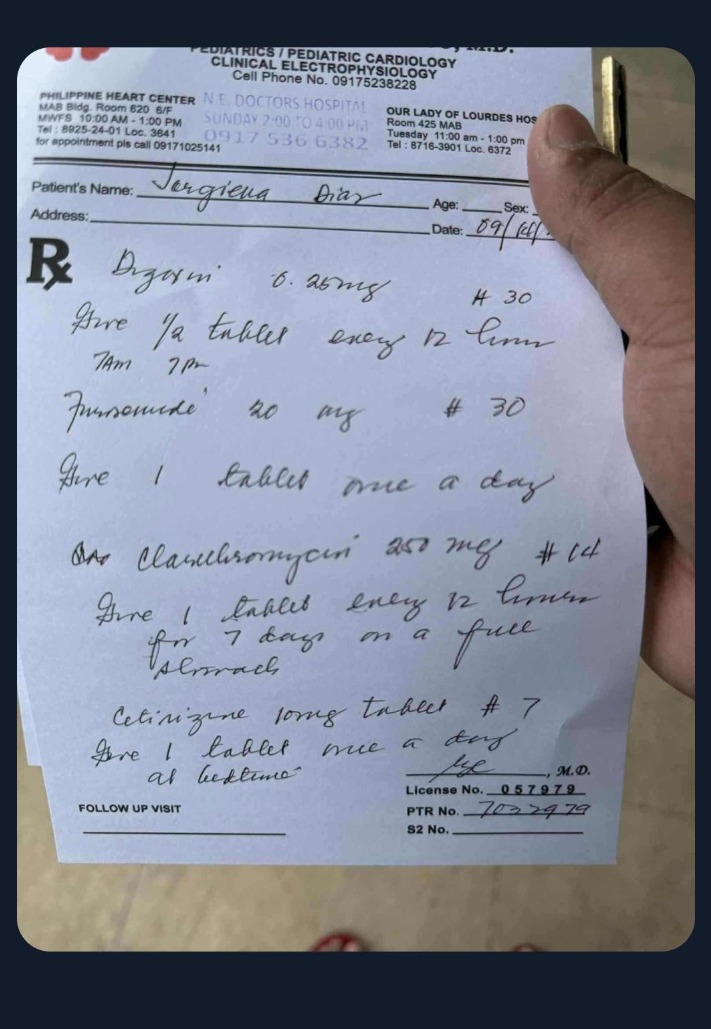 PEDIATRICS / PEDIATRIC CARDIOLOGY
CLINICAL ELECTROPHYSIOLOGY
Cell Phone No. 09175238228
PHILIPPINE HEART CENTER
MAB Bldg. Room 620 6/F
MWFS 10:00 AM - 1:00 PM
Tel : 8925-24-01 Loc. 3641
for appointment pls call 09171025141
N.E. DOCTORS HOSPITAL
SUNDAY 2:00 TO 4:00 PM
0917 536 6382
OUR LADY OF LOURDES HOS
Room 425 MAB
Tuesday 11:00 am - 1:00 pm
Tel : 8716-3901 Loc. 6372
Patient's Name: Diaz Age: Sex:
Address: Date: 09/
Rx
0.25mg # 30
Give 1/2 tablet every 12 hours
7AM 7PM
Furosemide 20 mg # 30
Give 1 tablet once a day
Clarithromycin 250 mg # 14
Give 1 tablet every 12 hours
for 7 days on a full
stomach
Cetirizine 10mg tablet # 7
Give 1 tablet once a day
at bedtime
, M.D.
License No. 057979
PTR No. 7032979
S2 No.
FOLLOW UP VISIT